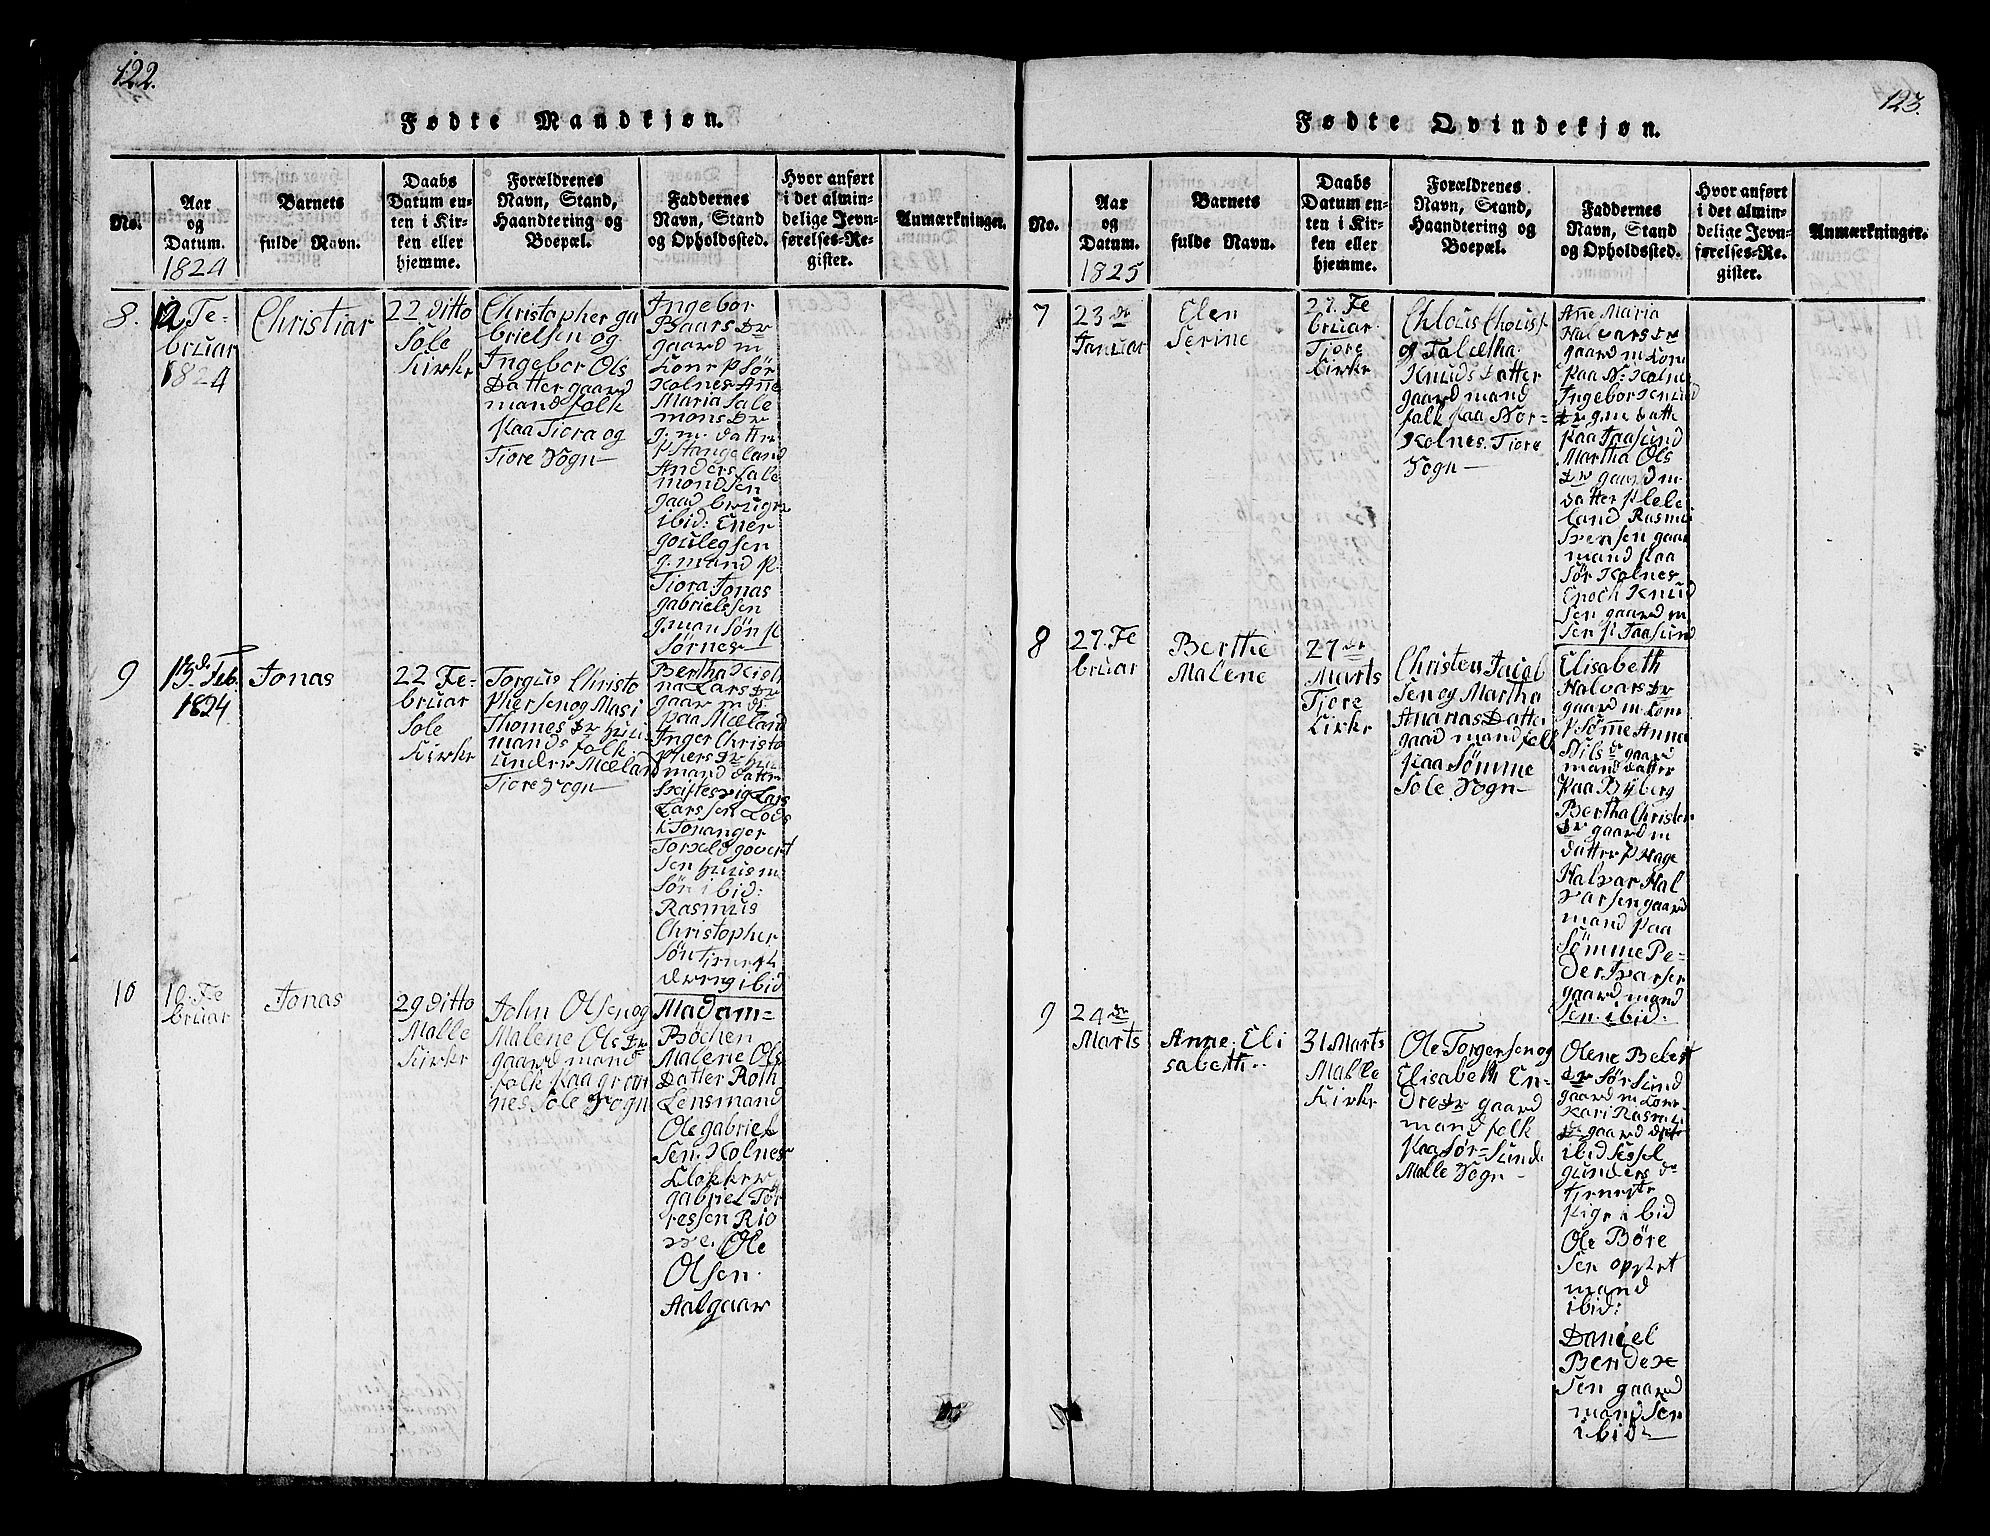 122.
Fødte Mandkjøn.
No.
Aar
og
Datum.
1824
Barnets
fulde Navn.
Daabs
Datum en-
ten i Kir-
ken eller
hjemme.
Forældrenes
Navn, Stand,
Haandtering og
Boepæl.
Faddernes
Navn, Stand
og Opholdssted.
Hvor anført
i det almin-
delige Jevn-
førelses-Re-
gister.
Anmærkninger.
8.
12 Fe-
bruar
1824
Christian
22 ditto
Sole
Kirke
Christopher ga
brielsen og
Ingebor Ols
Datter gaard
mand folk
paa Tiora og
Tiore Sogn
Ingebor
Baars Dr
gaard m
Konr p Sør
Kolnes Ane
Maria Sale
mons Dr
g. m. datter
p Stangeland
Anders Sale
mondsen
gaard bruger
ibid: Ener
Goulegsen
g. mand p.
Tiora Jonas
gabrielssen
g.man Søn p
Sørnes
9
13 d. Feb.
1824.
Jonas
22 Fe-
bruar
Sole
Kirke
Torgus Christo
phersen og Masi
Thomes Dr huu
mands folk
under Mæland
Tiore Sogn
Bertha Kisti
na Lars Dr
gaar m dr
paa Mæland
Inger Christo
phers Dr huu
mand datter
Skiftesvig Lars
Larssen Lods
i Tonanger
Torkeld govert
sen huus m
Søn i bid:
Rasmus
Christopher
Søn Tieneste
dreng ibid
10
10 Fe
bruar
Jonas
29 ditto
Malle
Kirke
John Olsen og
Malene Ols Dr
gaard mand
folk paa gran
nes Sole Sogn
Madam=
Bøchen
Malene Ols
Datter Roth
Lensmand
Ole gabriel
sen Kolnes
Klokker
gabriel Tør
ressen Rio
Ole
Olsen
Aalgaar
123.
Fødte Qvindekjøn.
No.
Aar
og
Datum.
1825
Barnets
fulde Navn.
Daabs
Datum en-
ten i Kir-
ken eller
hjemme.
Forældrenes
Navn, Stand,
Haandtering og
Boepæl.
Faddernes
Navn, Stand
og Opholdssted.
Hvor anført
i det almin-
delige Jevn-
førelses-Re-
gister.
Anmærkninger.
7
23 de
Januar
Elen
Serine
27. Fe
bruar.
Tiore
Kirke
Clous Choust
og Taletha
Knuds Datter
gaard mand
folk paa Nor-
Kolnes. Tiore
Sogn
Ane Maria
Halvars Dr
gaard m Kone
paa N: Kolnes
Ingebor Knud
Dr g.m datte
paa Jaasund
Martha Ols
Dr gaard m
datter p Lele
land Rasmus
Svensen gaar
mand paa
Sør Kolnes
Enoch Knud
sen gaard m
Sen p Jaasund
8
27. Fe
bruar
Berthe
Malene
27 de
Marts
Tjore
Kirke
Christen Jacob
Sen og Martha
Ananas Datter
gaard mand folk
paa Sømme
Sole Sogn
Elisabeth
Halvars Dr
gaard m. Kone
p Sømme Anna
Nils dr gaard
mand datter
paa Byberg
Bertha Christen
Dr gaard m
datter p Hage
Halvar Hal
varsen gaard
mand paa
Sømme Pe-
der Ivarsen
gaard mand
Sen. ibid:
9
24 de
Marts
Anne Eli
sabeth..
31 Marts
Malle
Kirke
Ole Torgersen og
Elisabeth En-
dres Dr gaard
mand folk
paa Sør= Sunde
Malle Sogn
Olene Bekest
Dr Sør Sund
gaard m Kone
Kari Rasmus
dr gaard datte
ibid Sessel
gunders dr
tieneste
pige ibid
Ole Børe
Sen opsket
mand
ibid:
Daniel
Bendex
Sen gaard
mand Sen
ibid